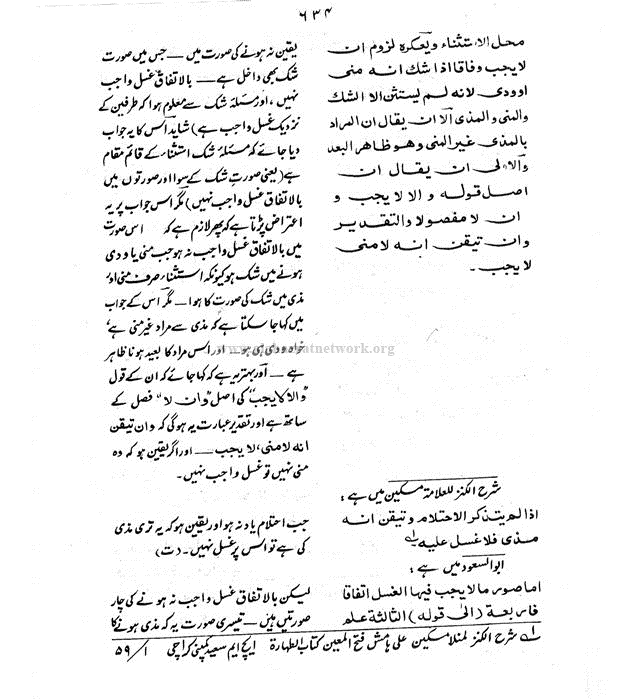 ۶۳۴
محل الاستثناء ویعکرہ لزوم ان
لایجب وفاقا اذا شك انه منی
اوودی لانه لم یستثن الا الشك
والمنی والمذی الا ان یقال ان المراد
بالمذی غیر المنی وھو ظاھر البعد
والاولی ان یقال ان
اصل قوله و الا لایجب و
ان لا مفصولا والتقدیر
وان تیقن انه لا منی
لایجب۔
شرح الکنز للعلامۃ مسکین میں ہے :
اذا لم یتذکر الاحتلام و تیقن انه
مذی فلا غسل علیه۔۱
ابو السعود میں ہے :
اما صور مالا یجب فیھا الغسل اتفاقا
فاربعة (الٰی قوله) الثالثة علم
یقین نہ ہونے کی صورت میں — جس میں صورت
شک بھی داخل ہے — بالاتفاق غسل واجب
نہیں ، اور مسئلہ شک سے معلوم ہوا کہ طرفین کے
نزدیک غسل واجب ہے) شاید اس کا یہ جواب
دیا جائے کہ مسئلہ شک استثناء کے قائم مقام
ہے (یعنی صورتِ شک کے سوا اور صورتوں میں
بالاتفاق غسل واجب نہیں) مگر اس جواب پر یہ
اعتراض پڑتا ہے کہ پھر لازم ہے کہ اس صورت
میں بالاتفاق غسل واجب نہ ہو جب منی یا ودی
ہونے میں شک ہو کیونکہ استثناء صرف منی اور
مذی میں شک کی صورت کا ہوا — مگر اس کے جواب
میں کہا جا سکتا ہے کہ مذی سے مراد غیر منی ہے ،
خواہ ودی ہی ہو — اور اس مراد کا بعید ہونا ظاہر
ہے — اور بہتر یہ ہے کہ کہا جائے کہ ان کے قول
"والا لایجب" کی اصل "وان لا" فصل کے
ساتھ ہے اور تقدیر عبارت یہ ہوگی کہ وان تیقن
انه لا منی ، لایجب — اور اگر یقین ہو کہ وہ
منی نہیں تو غسل واجب نہیں۔
جب احتلام یاد نہ ہو اور یقین ہو کہ یہ تری مذی
کی ہے تو اس پر غسل نہیں۔ (ت)
لیکن بالاتفاق غسل واجب نہ ہونے کی چار
صورتیں ہیں — تیسری صورت یہ کہ مذی ہونے کا
۱ شرح الکنز لمنلا مسکین علی ہامش فتح المعین کتاب الطہارۃ ایچ ایم سعید کمپنی کراچی ۱/ ۵۹